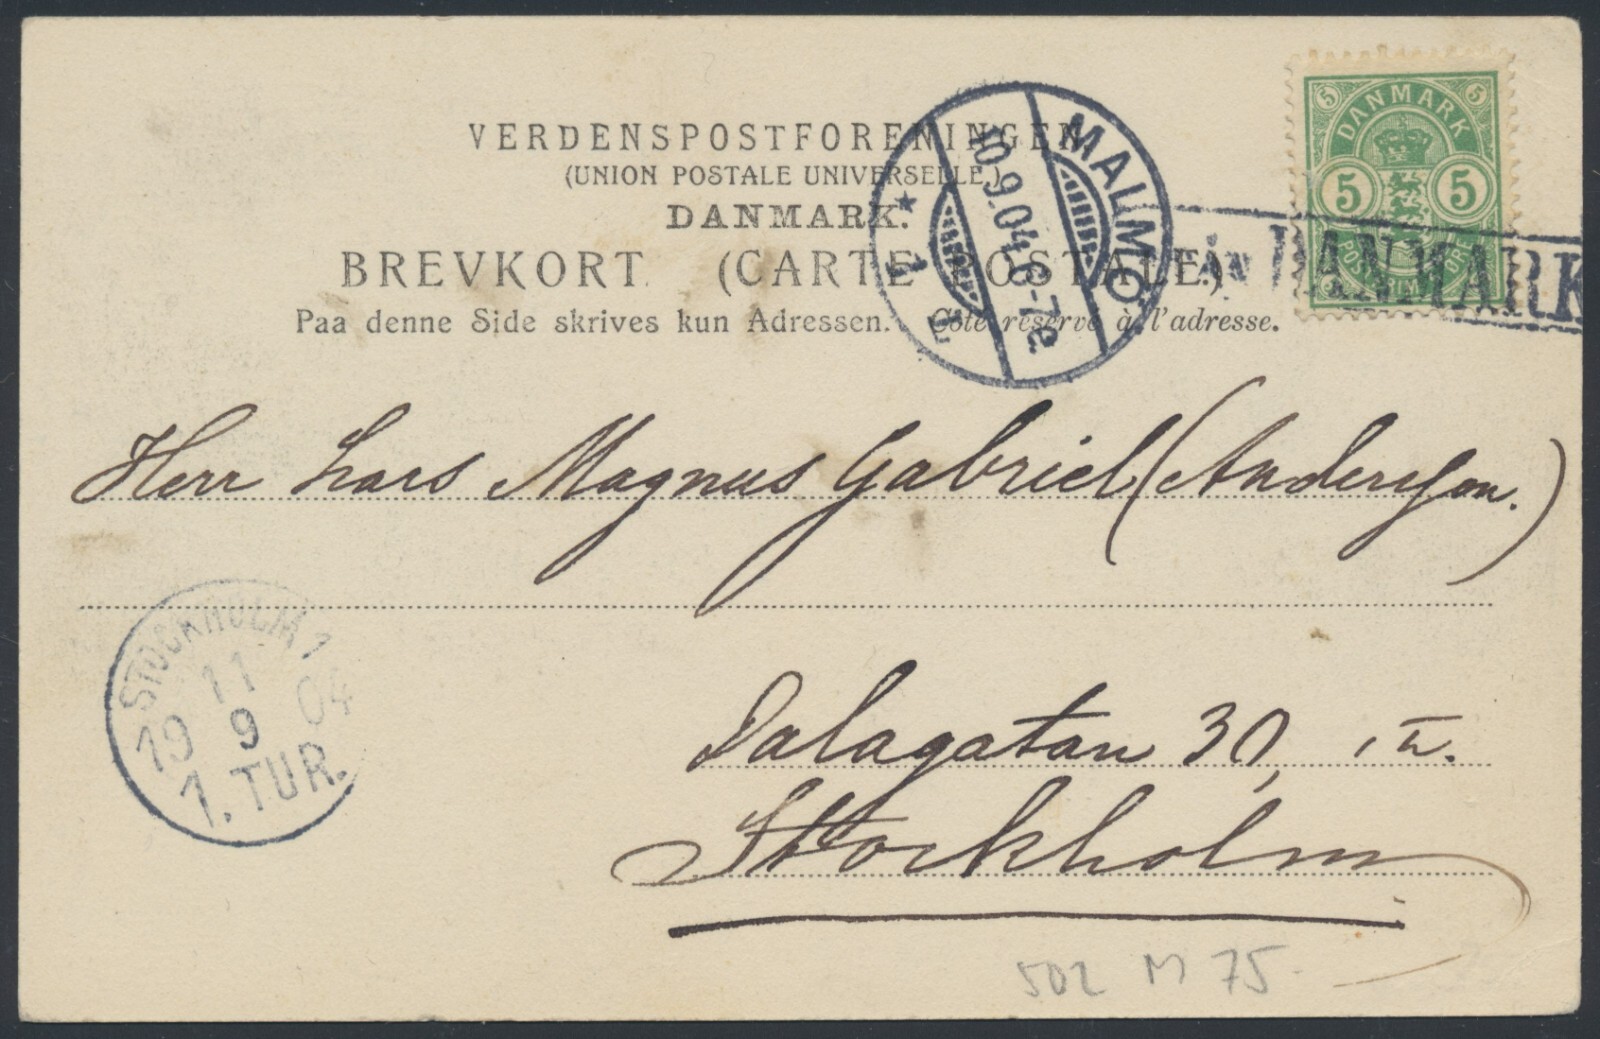 VERDENSPOSTFORENINGEN
(UNION POSTALE UNIVERSELLE.)
DANMARK.
BREVKORT (CARTE POSTALE.)
Paa denne Side skrives kun Adressen. Côté réservé à l'adresse.
MALMÖ
10.9.04.6-7e.
* 1 L
DANMARK
5 5
5 5
POSTFRIM. 5 ØRE
FRÅN DANMARK
Herr Lars Magnus Gabriel (Andersson.)
STOCKHOLM 1
11
19 9 04
1. TUR.
Dalagatan 30,
Stockholm
502 M 75